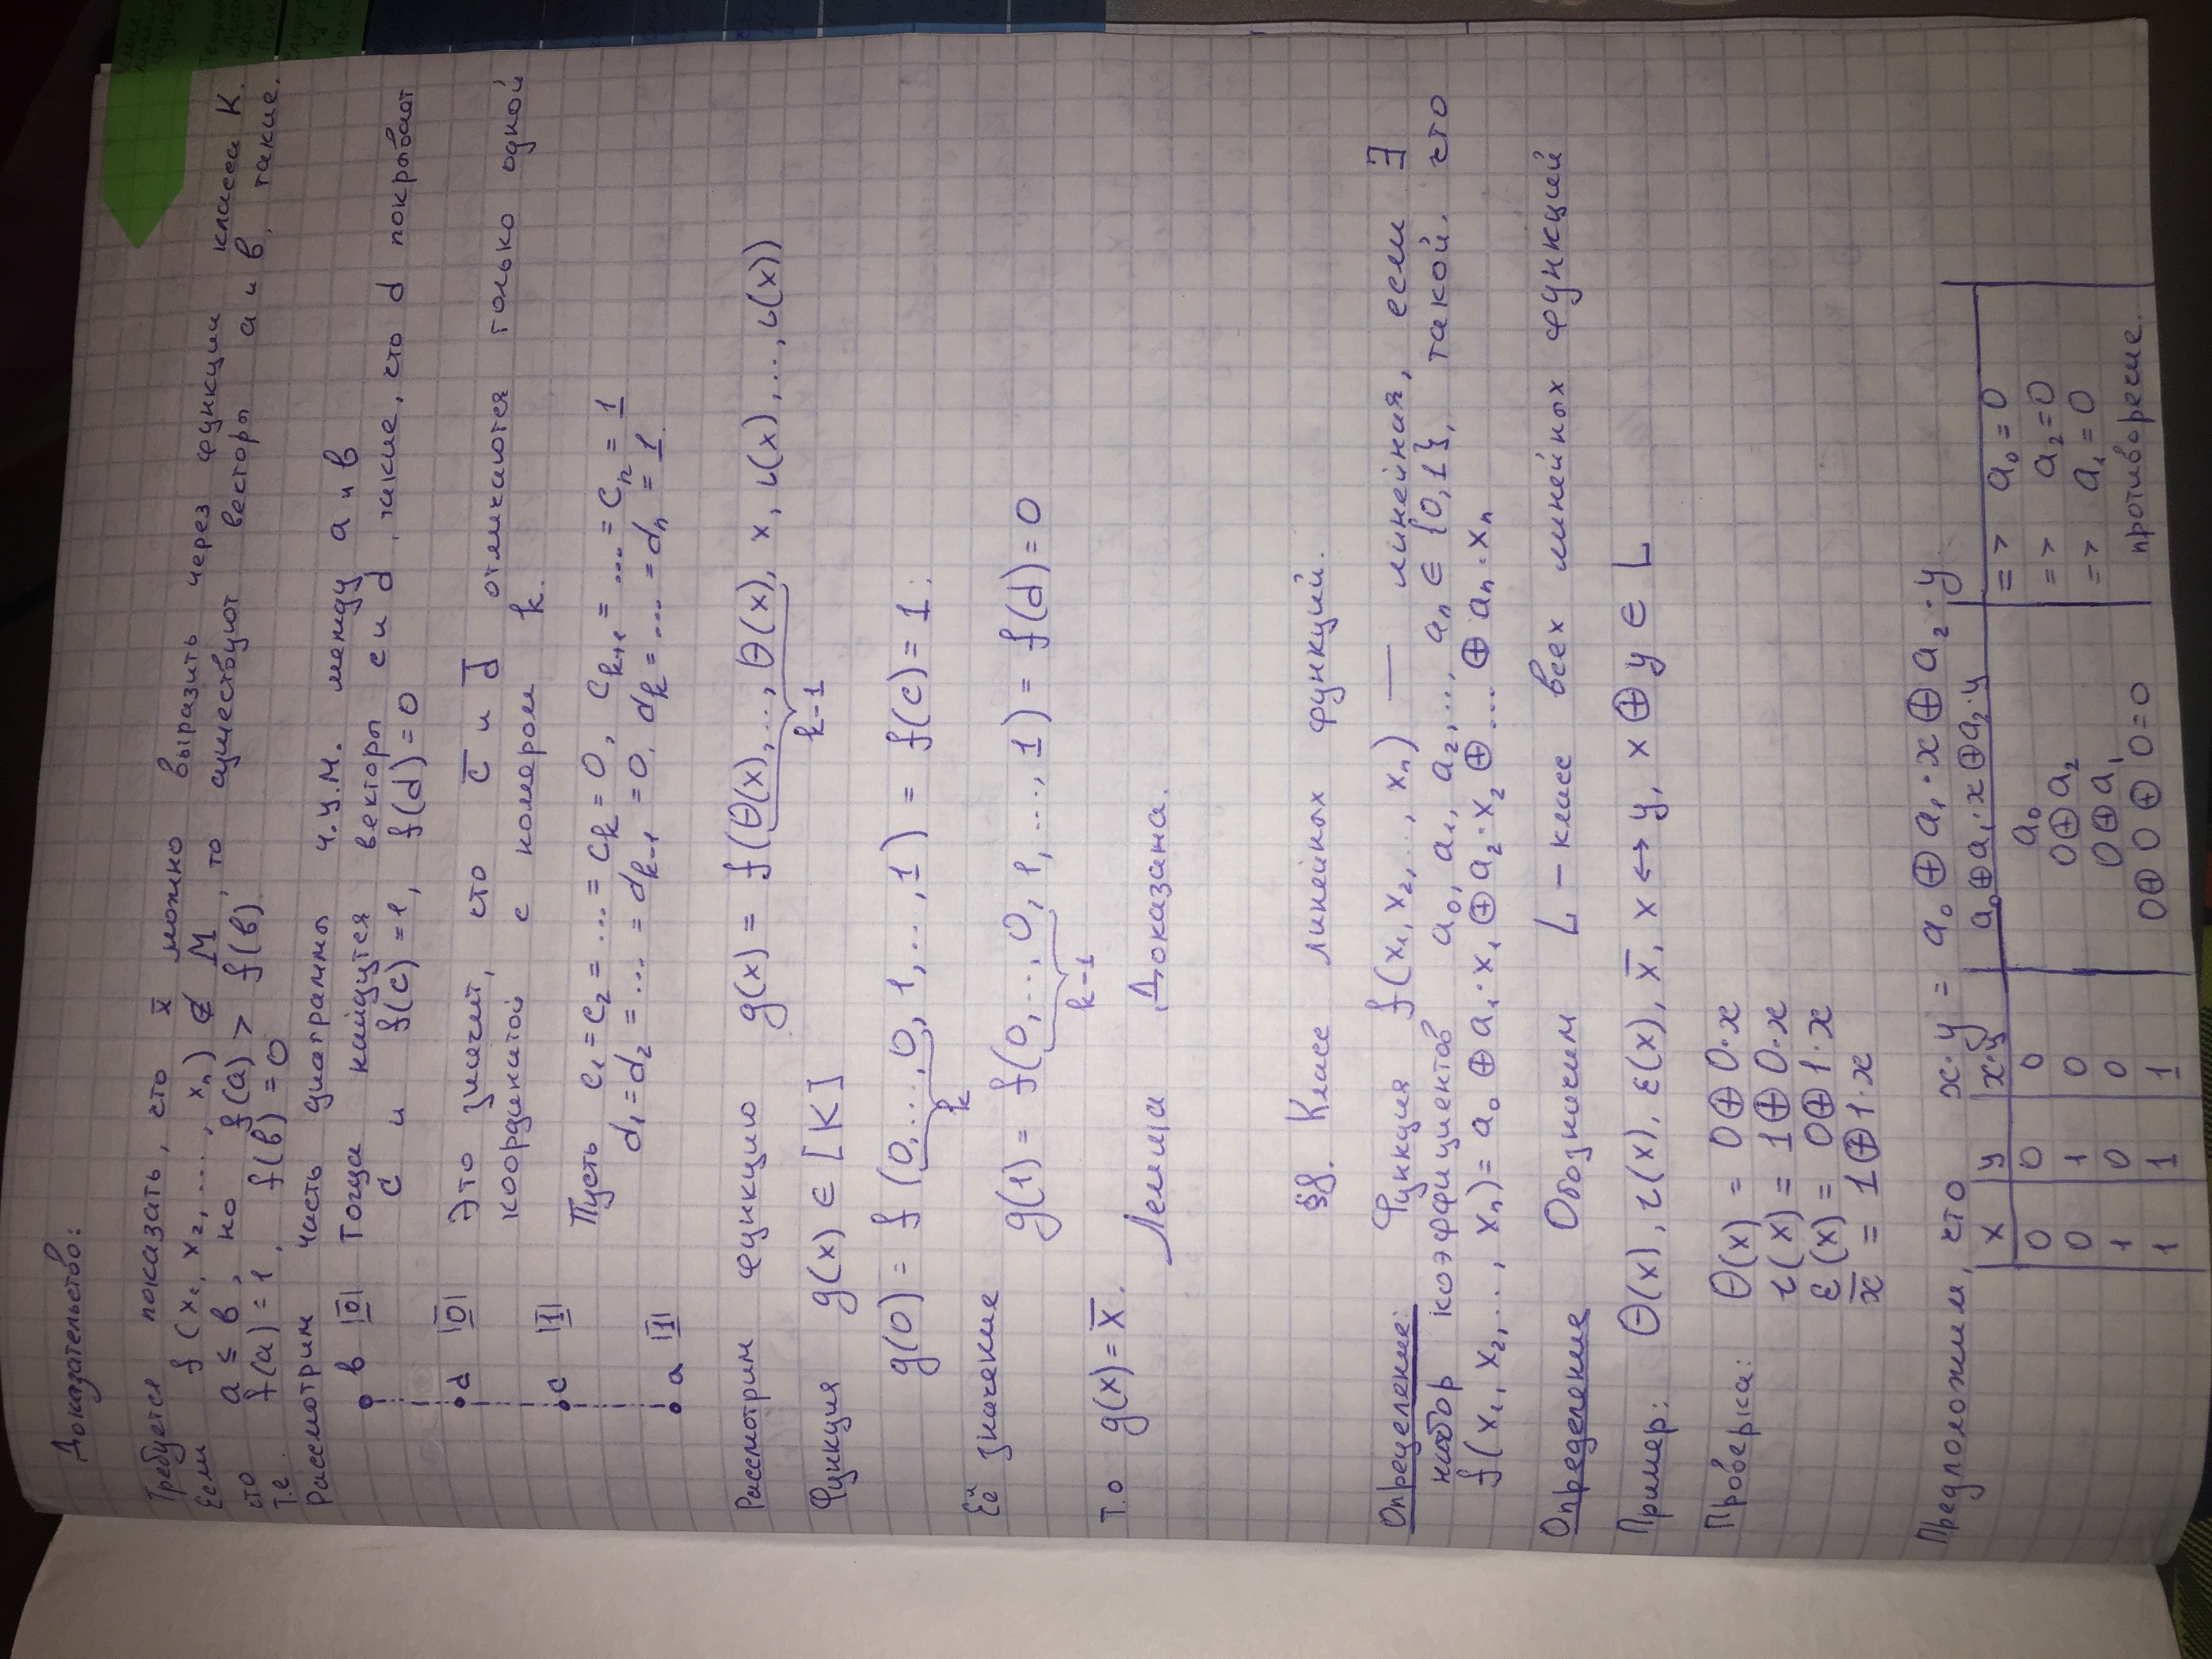 Доказательство:
Требуется показать, что x̄ можно выразить через функции класса K.
Если f(x₁, x₂, ..., xₙ) ∉ M, то существуют векторы a и b, такие,
что a ≤ b, но f(a) > f(b).
т.е. f(a) = 1, f(b) = 0
Рассмотрим часть диаграммы ч.у.м. между a и b
b |0̲̅| Тогда найдутся векторы c и d, такие, что d покрывает
c и f(c) = 1, f(d) = 0
d |0̲̅| Это значит, что c̅ и d̅ отличаются только одной
координатой с номером k.
c |1̲̅|
Пусть c₁ = c₂ = ... = cₖ = 0, cₖ₊₁ = ... = cₙ = 1
d₁ = d₂ = ... = dₖ₋₁ = 0, dₖ = ... = dₙ = 1.
a |1̲̅|
Рассмотрим функцию g(x) = f(θ(x), .., θ(x), x, ι(x), .., ι(x))
k-1
Функция g(x) ∈ [K]
g(0) = f(0, ..., 0, 1, .., 1) = f(c) = 1;
k
Её значение
g(1) = f(0, .., 0, 1, ..., 1) = f(d) = 0
k-1
Т.о g(x) = x̄.
Лемма Доказана.
§8. Класс линейных функций.
Определение: Функция f(x₁, x₂, .., xₙ) — линейная, если ∃
набор коэффициентов a₀, a₁, a₂, .., aₙ ∈ {0,1}, такой, что
f(x₁, x₂, .., xₙ) = a₀ ⊕ a₁·x₁ ⊕ a₂·x₂ ⊕ ... ⊕ aₙ·xₙ
Определение Обозначим L – класс всех линейных функций
Пример: θ(x), ι(x), ε(x), x̄, x ↔ y, x ⊕ y ∈ L
Проверка: θ(x) = 0 ⊕ 0·x
ι(x) = 1 ⊕ 0·x
ε(x) = 0 ⊕ 1·x
x̄ = 1 ⊕ 1·x
Предположим, что x·y = a₀ ⊕ a₁·x ⊕ a₂·y.
x y x·y a₀⊕a₁·x⊕a₂·y
0 0 0 a₀ => a₀ = 0
0 1 0 0 ⊕ a₂ => a₂ = 0
1 0 0 0 ⊕ a₁ => a₁ = 0
1 1 1 0 ⊕ 0 ⊕ 0 = 0 противоречие.